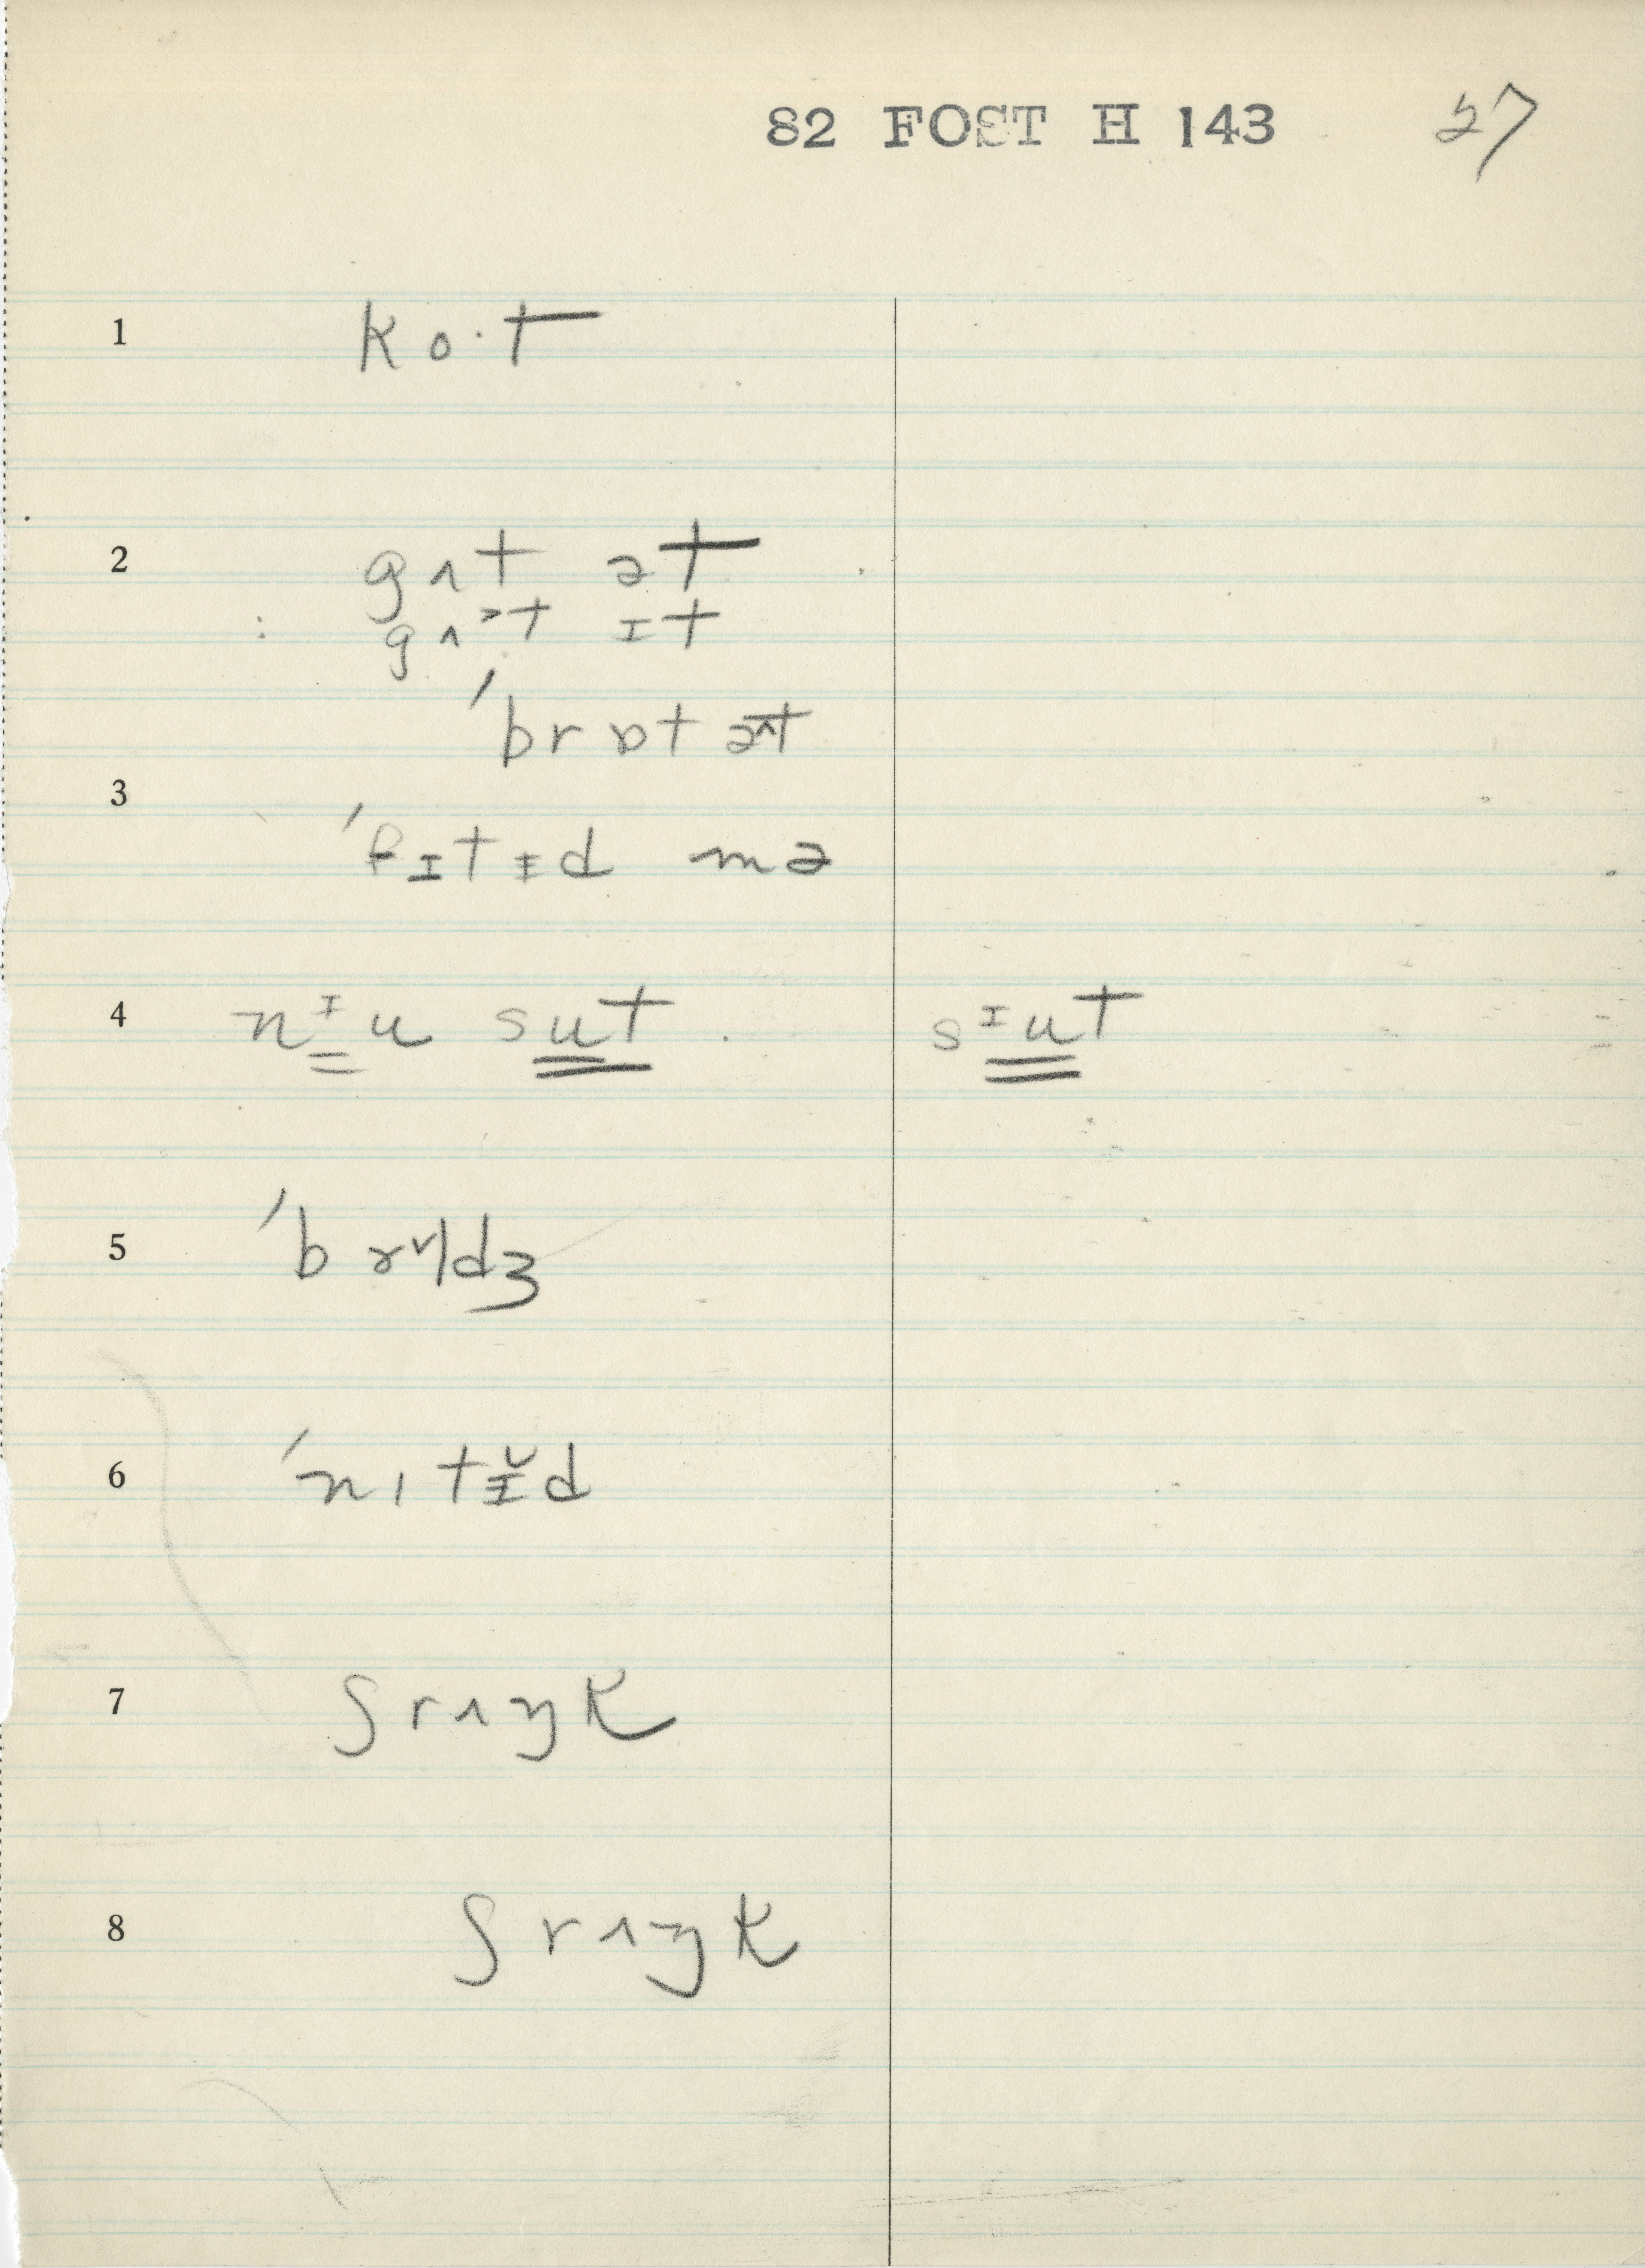 82 FOST H 143 27
1 ko·t
2 gʌt ət
gʌᵊt ɪt
ˈbrɒt əˆt
3
ˈfɪtɪ̵d mə
4 nᶤ̳u su̳t̳ sᶦu̳t
5 ˈbrɤldʒ
6 ˈnɪtɪ̵̆d
7 ʃrʌŋk
8 ʃrʌŋk